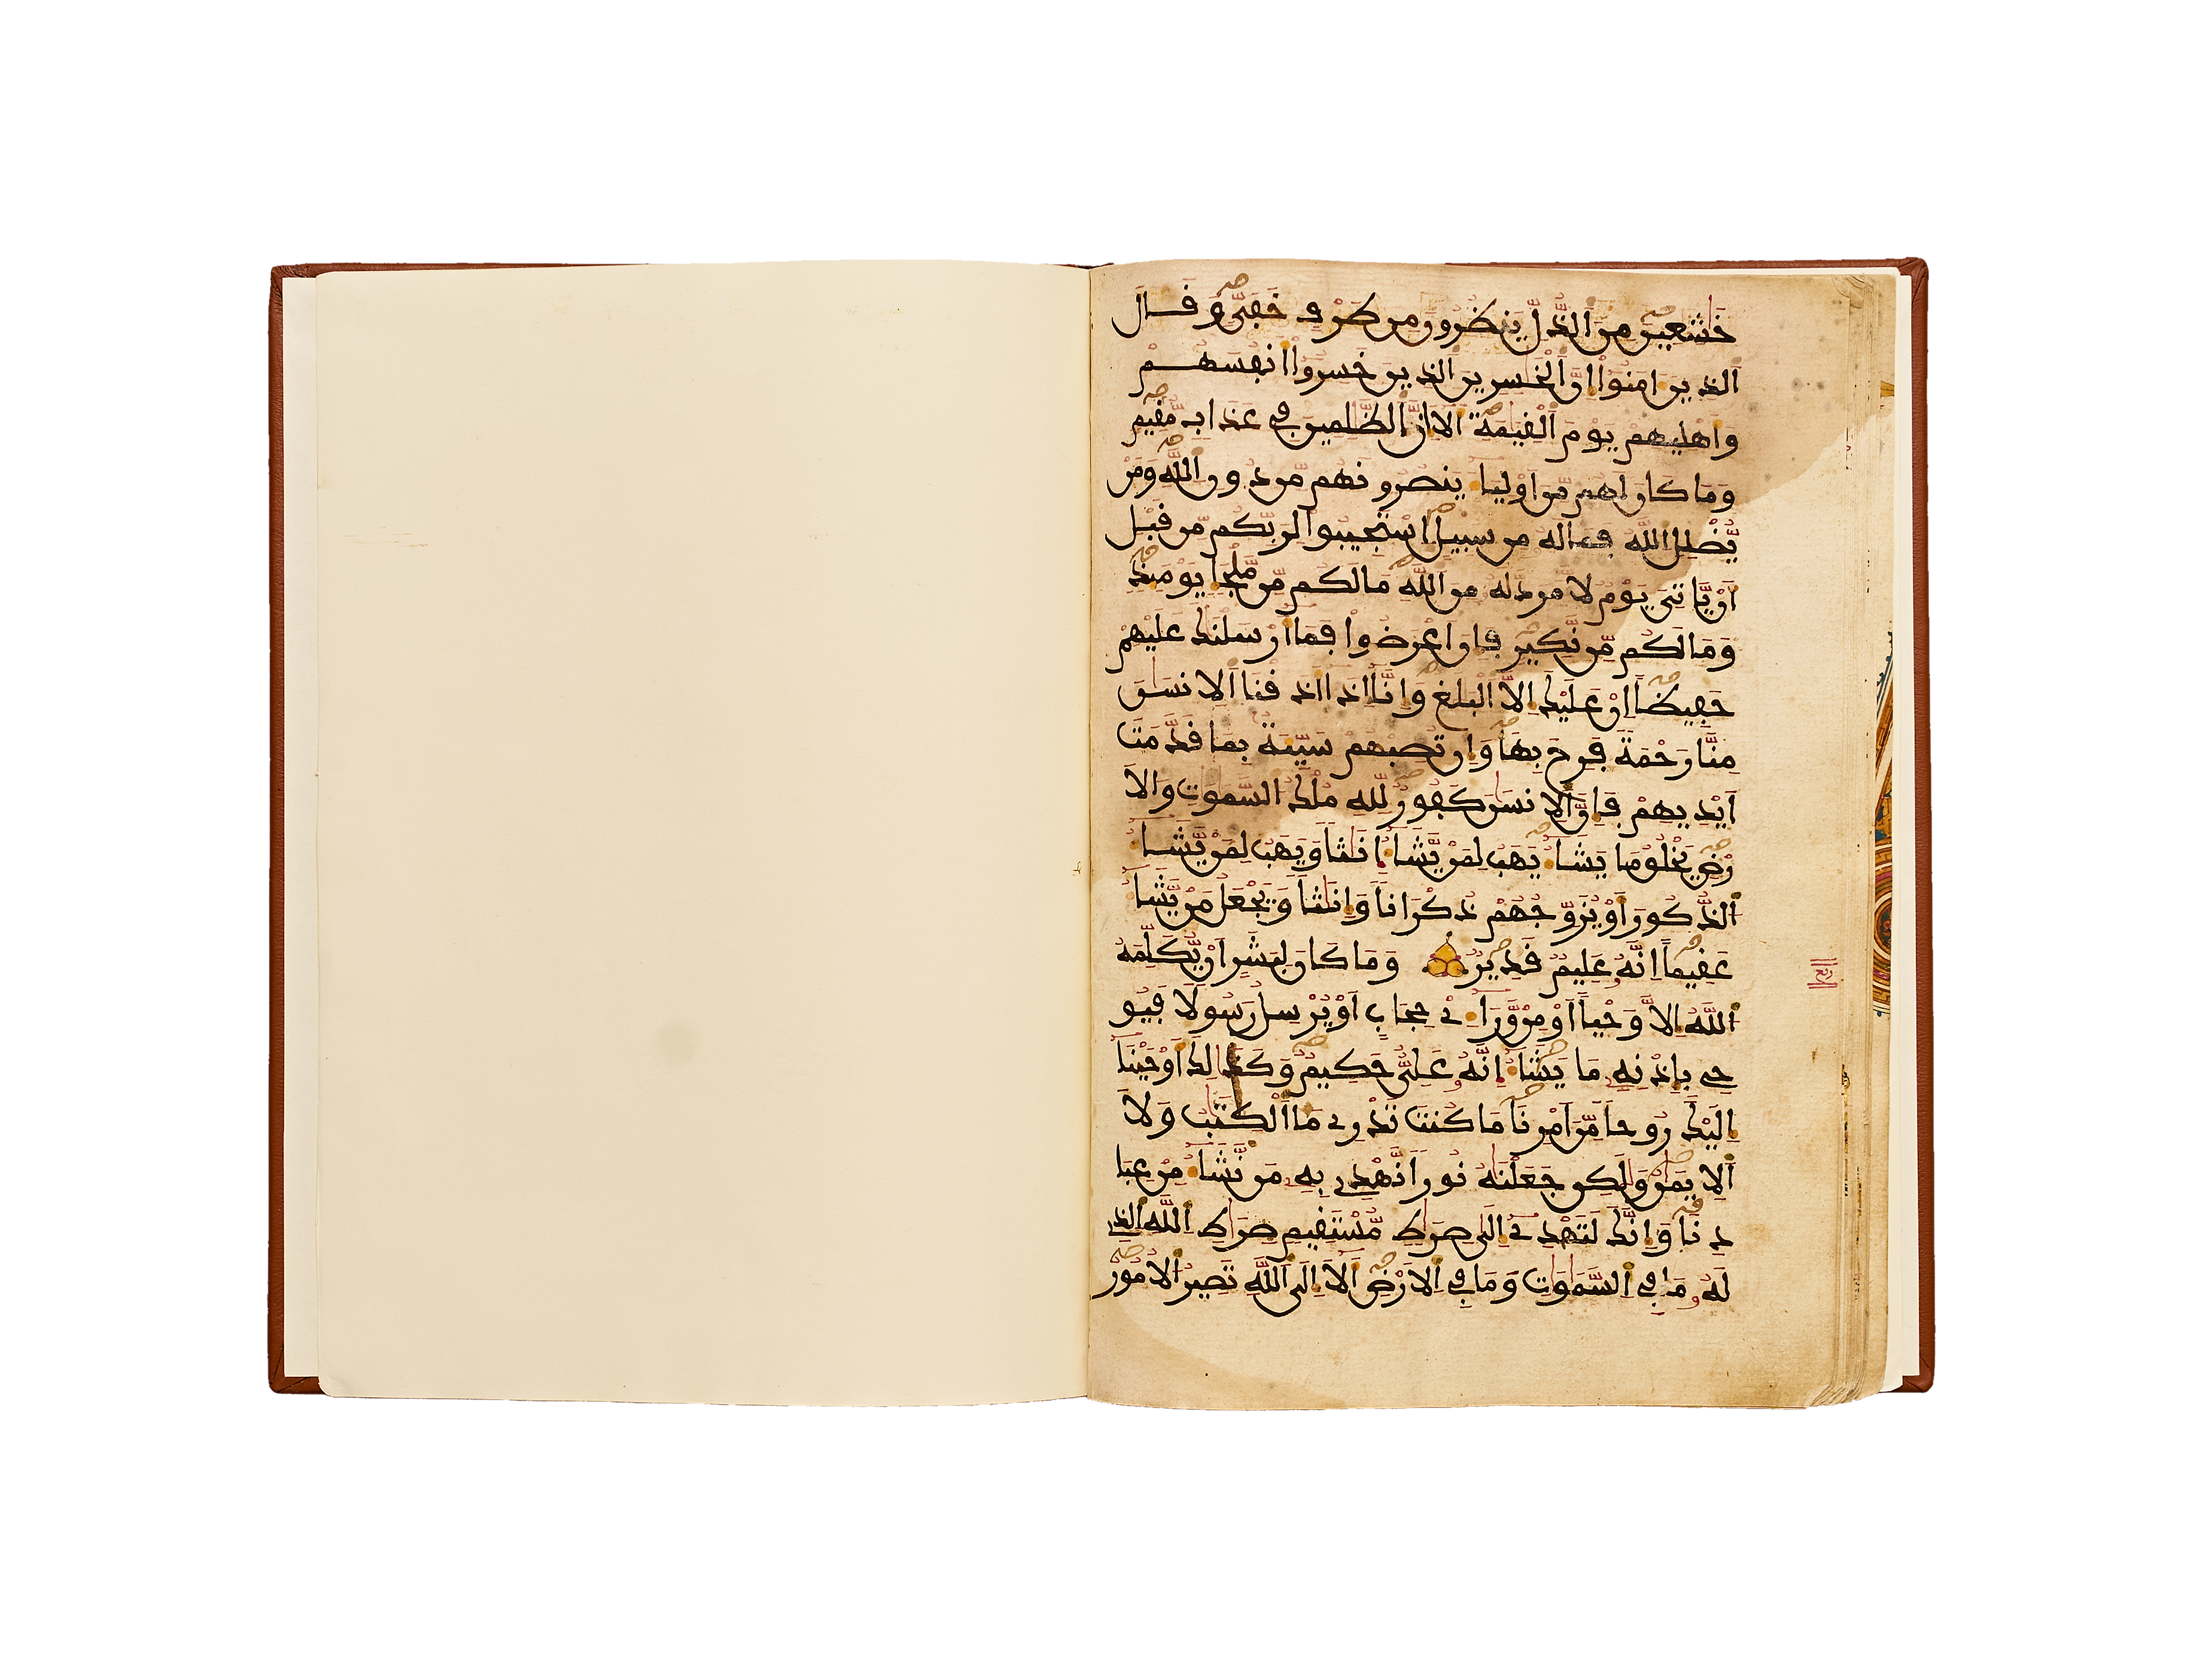 خٰشعين من الذل ينظرون من طرف خفي وقال
الذين امنوا ان الخٰسرين الذين خسروا انفسهم
واهليهم يوم القيٰمة الا ان الظٰلمين في عذاب مقيم
وما كان لهم من اولياء ينصرونهم من دون الله ومن
يضلل الله فما له من سبيل استجيبوا لربكم من قبل
ان ياتي يوم لا مرد له من الله ما لكم من ملجا يومئذ
وما لكم من نكير فان اعرضوا فما ارسلنٰك عليهم
حفيظا ان عليك الا البلٰغ وانا اذا اذقنا الانسٰن
منا رحمة فرح بها وان تصبهم سيئة بما قدمت
ايديهم فان الانسٰن كفور لله ملك السمٰوٰت والا
رض يخلق ما يشاء يهب لمن يشاء انٰثا ويهب لمن يشاء
الذكور او يزوجهم ذكرانا وانٰثا ويجعل من يشاء
عقيما انه عليم قدير وما كان لبشر ان يكلمه
الله الا وحيا او من وراء ي حجاب او يرسل رسولا فيو
حي باذنه ما يشاء انه علي حكيم وكذٰلك اوحينا
اليك روحا من امرنا ما كنت تدري ما الكتٰب ولا
الايمٰن ولٰكن جعلنٰه نورا نهدي به من نشاء من عبا
دنا وانك لتهدي الى صرٰط مستقيم صرٰط الله الذي
له ما في السمٰوٰت وما في الارض الا الى الله تصير الامور
ربع